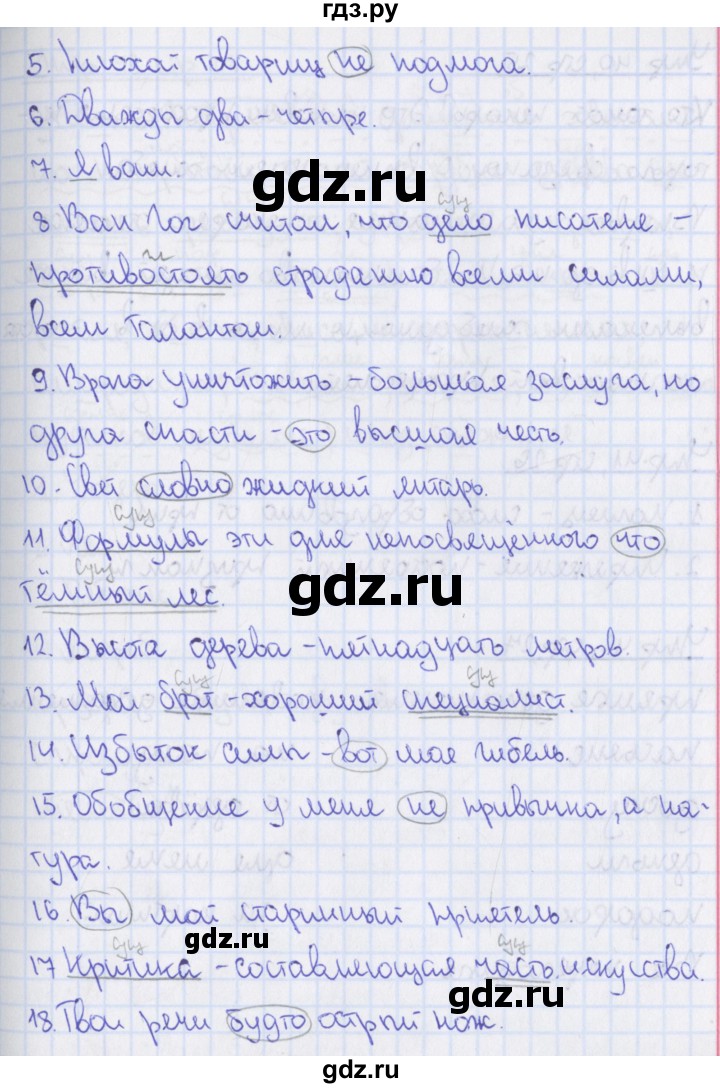 гдз.ру
5. Плохой товарищ не подмога.
6. Дважды два - четыре.
7. Я ваш.
gdz.ru
сущ
8. Ван Гог считал, что дело писателя -
гл
противостоять страданию всеми силами,
всем талантом.
9. Врага уничтожить - большая заслуга, но
друга спасти - это высшая честь.
10. Свет словно жидкий янтарь.
сущ
11. Формулы эти для непосвящённого что
сущ
тёмный лес.
gdz.ru
12. Высота дерева - пятнадцать метров.
сущ сущ
13. Мой брат - хороший специалист.
14. Избыток силы - вот моя гибель.
15. Обобщение у меня не привычка, а на-
тура.
16. Вы мой старинный приятель.
gdz.ru
сущ сущ
17 Критика - составляющая часть искуства.
gdz.ru
18. Твои речи будто острый нож.
gdz.ru